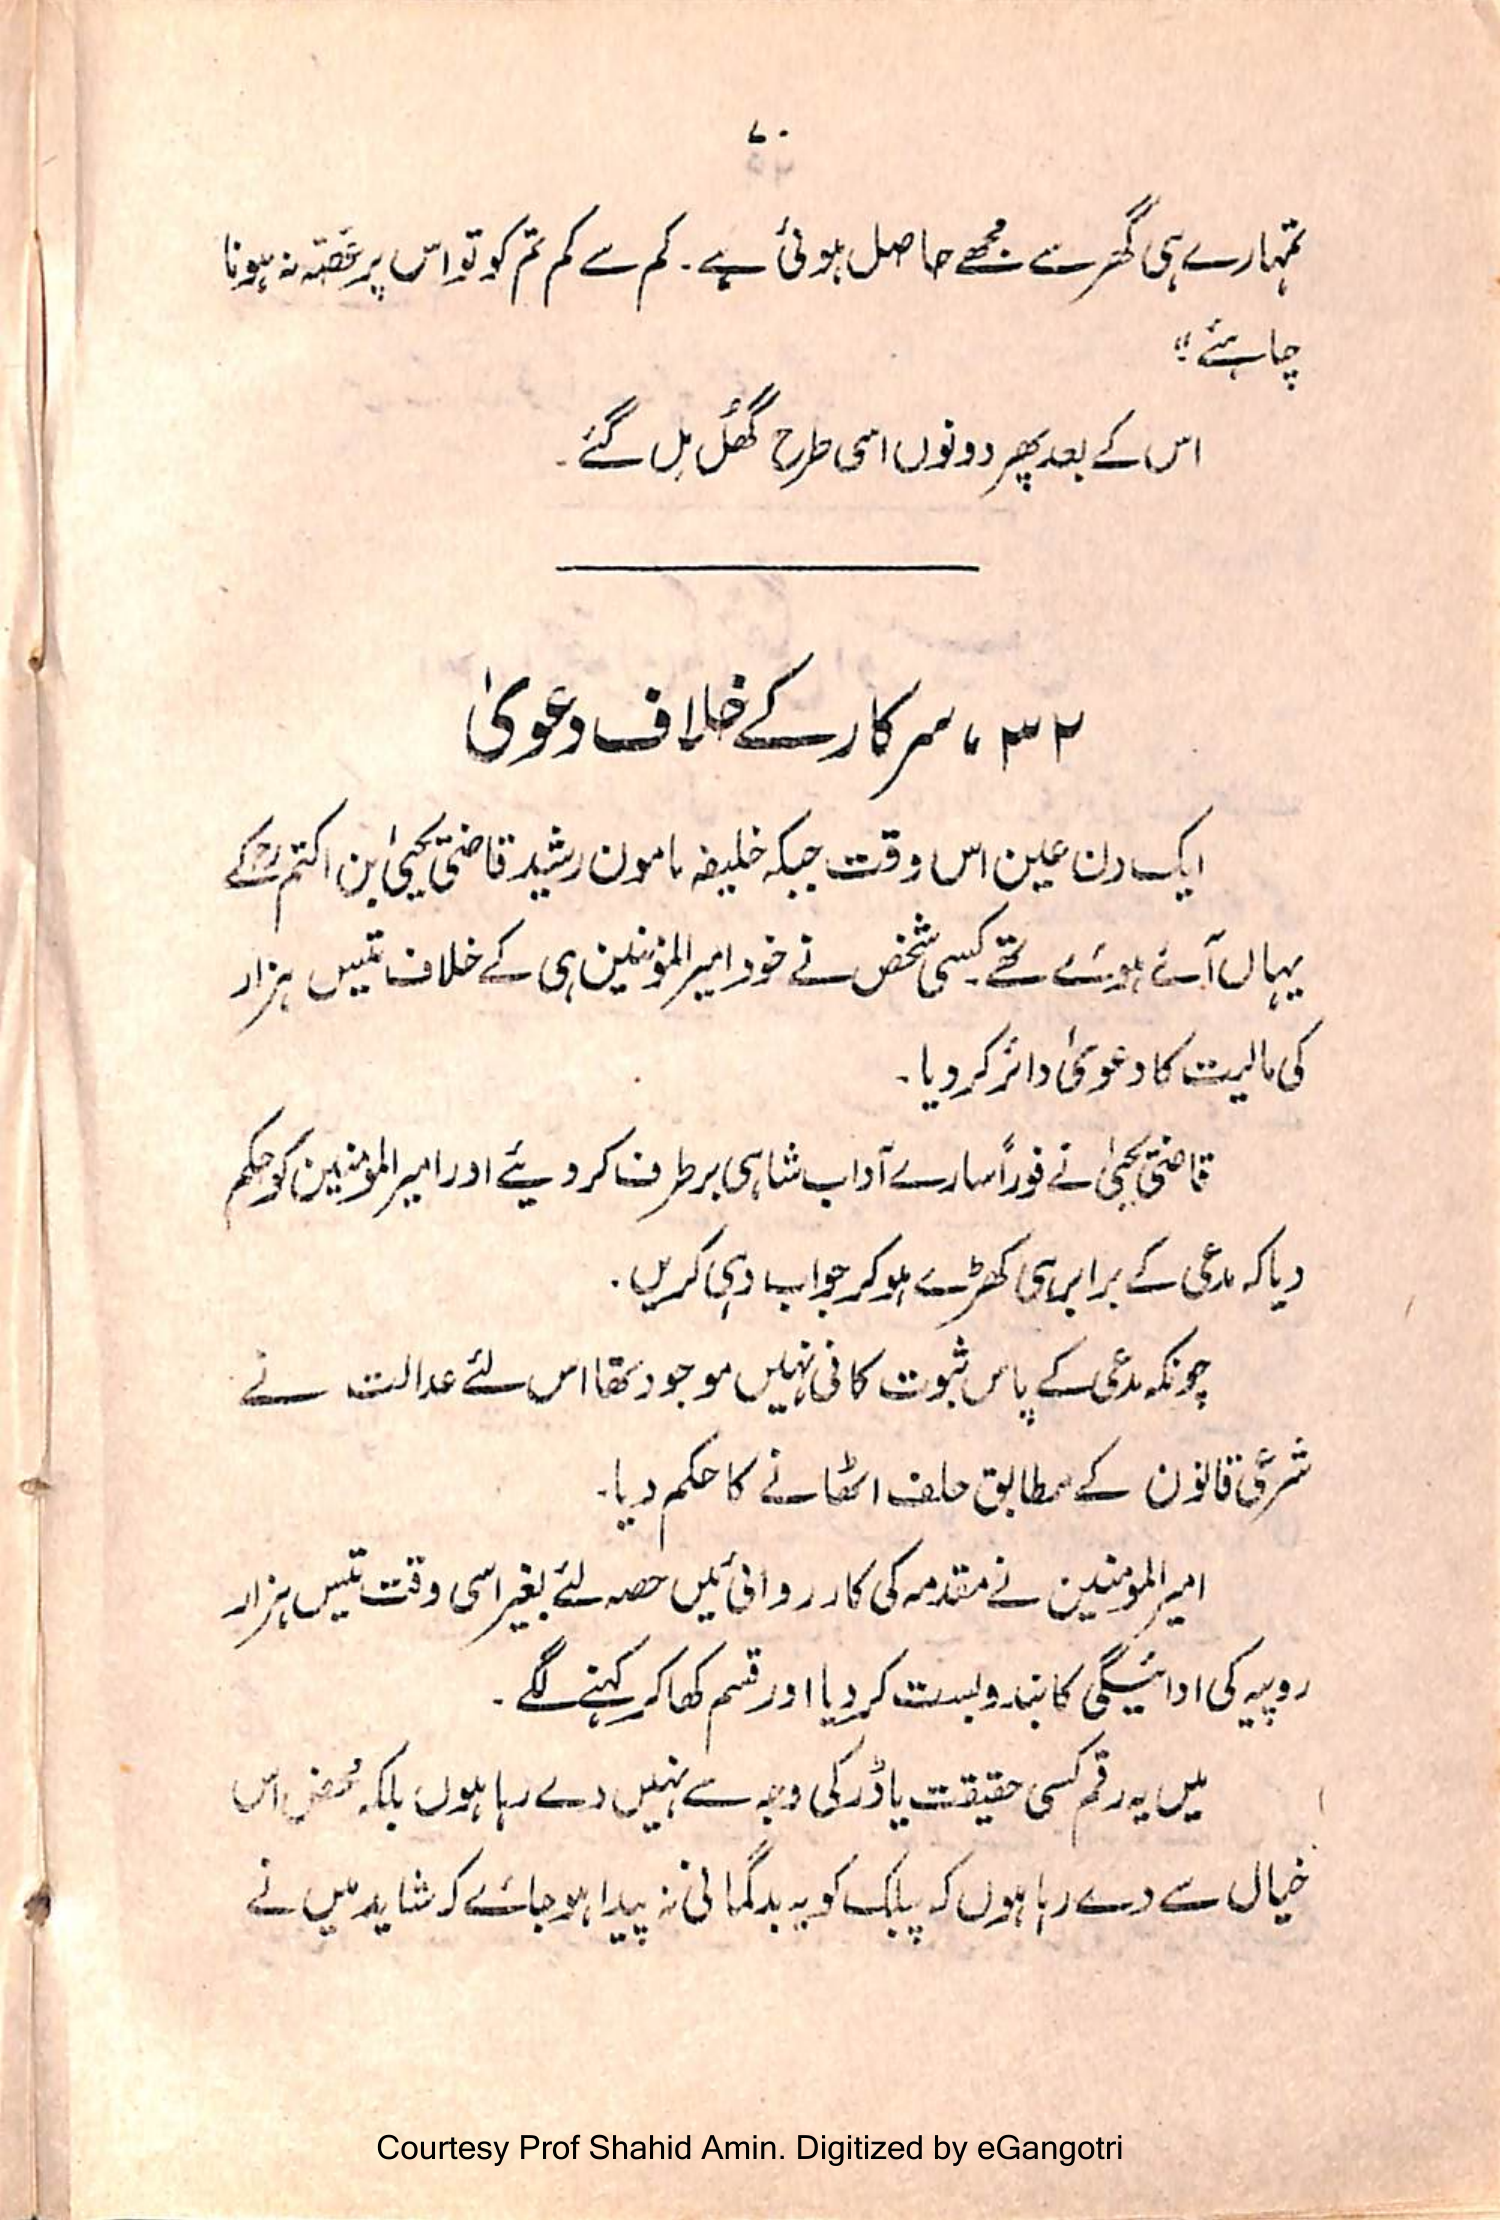 ۷۰
تمہارے ہی گھر سے مجھے حاصل ہوئی ہے۔ کم سے کم تم کو تو اس پر غصّہ نہ ہونا
چاہئے"
اس کے بعد پھر دونوں اسی طرح گھُل مِل گئے۔
۳۲، سرکار کے خلاف دعویٰ
ایک دن عین اس وقت جبکہ خلیفہ مامون رشید قاضی یحییٰ بن اکتم رح کے
یہاں آئے ہوئے تھے۔ کسی شخص نے خود امیر المؤمنین ہی کے خلاف تیس ہزار
کی مالیت کا دعویٰ دائر کر دیا۔
قاضی یحییٰ نے فوراً سارے آداب شاہی برطرف کر دیئے اور امیر المومنین کو حکم
دیا کہ مدعی کے برابر ہی کھڑے ہو کر جواب دہی کریں۔
چونکہ مدعی کے پاس ثبوت کافی نہیں موجود تھا اس لئے عدالت نے
شرعی قانون کے مطابق حلف اٹھانے کا حکم دیا۔
امیر المومنین نے مقدمہ کی کارروائی میں حصہ لئے بغیر اسی وقت تیس ہزار
روپیہ کی ادائیگی کا بندوبست کر دیا اور قسم کھا کر کہنے لگے۔
میں یہ رقم کسی حقیقت یا ڈر کی وجہ سے نہیں دے رہا ہوں بلکہ محض اس
خیال سے دے رہا ہوں کہ پبلک کو یہ بدگمانی نہ پیدا ہو جائے کہ شاید میں نے
Courtesy Prof Shahid Amin. Digitized by eGangotri